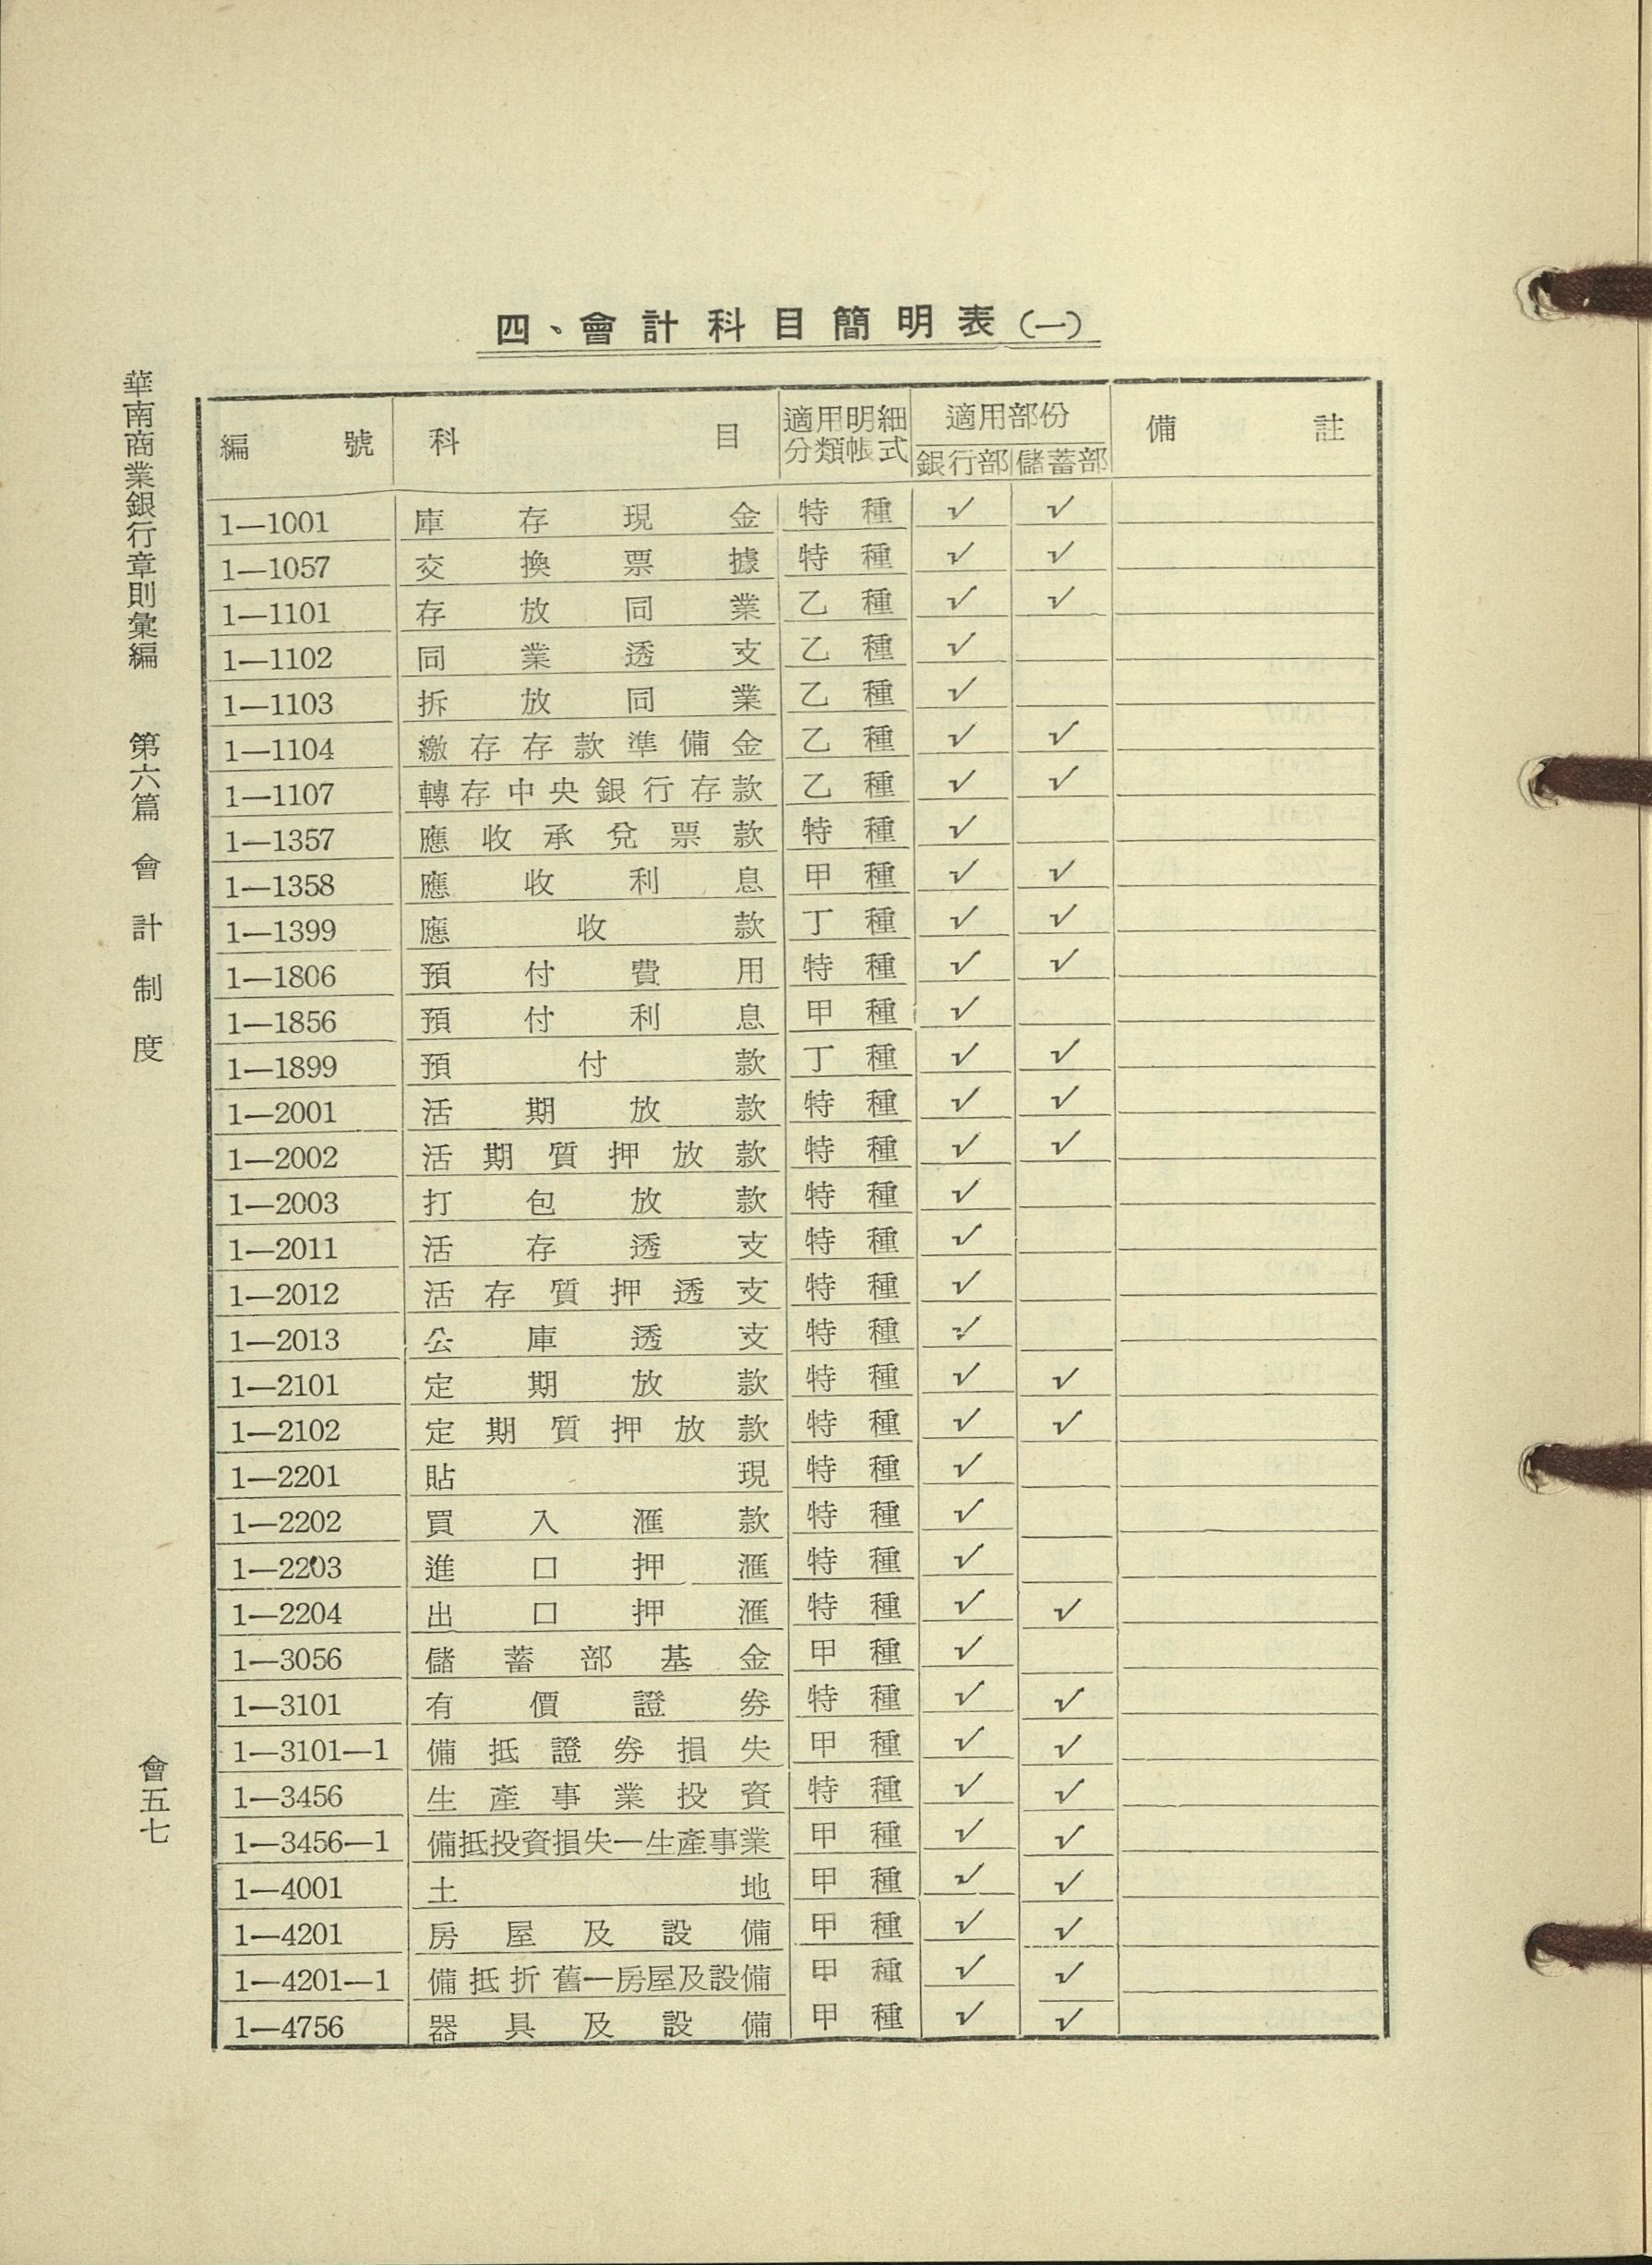 四、會計科目簡明表(一)
編號 科目 適用明細分類帳式 適用部份 備註
銀行部 儲蓄部
1—1001 庫存現金 特種 ✓ ✓
1—1057 交換票據 特種 ✓ ✓
1—1101 存放同業 乙種 ✓ ✓
1—1102 同業透支 乙種 ✓
1—1103 拆放同業 乙種 ✓
1—1104 繳存存款準備金 乙種 ✓ ✓
1—1107 轉存中央銀行存款 乙種 ✓ ✓
1—1357 應收承兌票款 特種 ✓
1—1358 應收利息 甲種 ✓ ✓
1—1399 應收款 丁種 ✓ ✓
1—1806 預付費用 特種 ✓ ✓
1—1856 預付利息 甲種 ✓
1—1899 預付款 丁種 ✓ ✓
1—2001 活期放款 特種 ✓ ✓
1—2002 活期質押放款 特種 ✓ ✓
1—2003 打包放款 特種 ✓
1—2011 活存透支 特種 ✓
1—2012 活存質押透支 特種 ✓
1—2013 公庫透支 特種 ✓
1—2101 定期放款 特種 ✓ ✓
1—2102 定期質押放款 特種 ✓ ✓
1—2201 貼現 特種 ✓
1—2202 買入滙款 特種 ✓
1—2203 進口押滙 特種 ✓
1—2204 出口押滙 特種 ✓ ✓
1—3056 儲蓄部基金 甲種 ✓
1—3101 有價證券 特種 ✓ ✓
1—3101—1 備抵證券損失 甲種 ✓ ✓
1—3456 生產事業投資 特種 ✓ ✓
1—3456—1 備抵投資損失—生產事業 甲種 ✓ ✓
1—4001 土地 甲種 ✓ ✓
1—4201 房屋及設備 甲種 ✓ ✓
1—4201—1 備抵折舊—房屋及設備 甲種 ✓ ✓
1—4756 器具及設備 甲種 ✓ ✓
華南商業銀行章則彙編 第六篇 會計制度
會五七